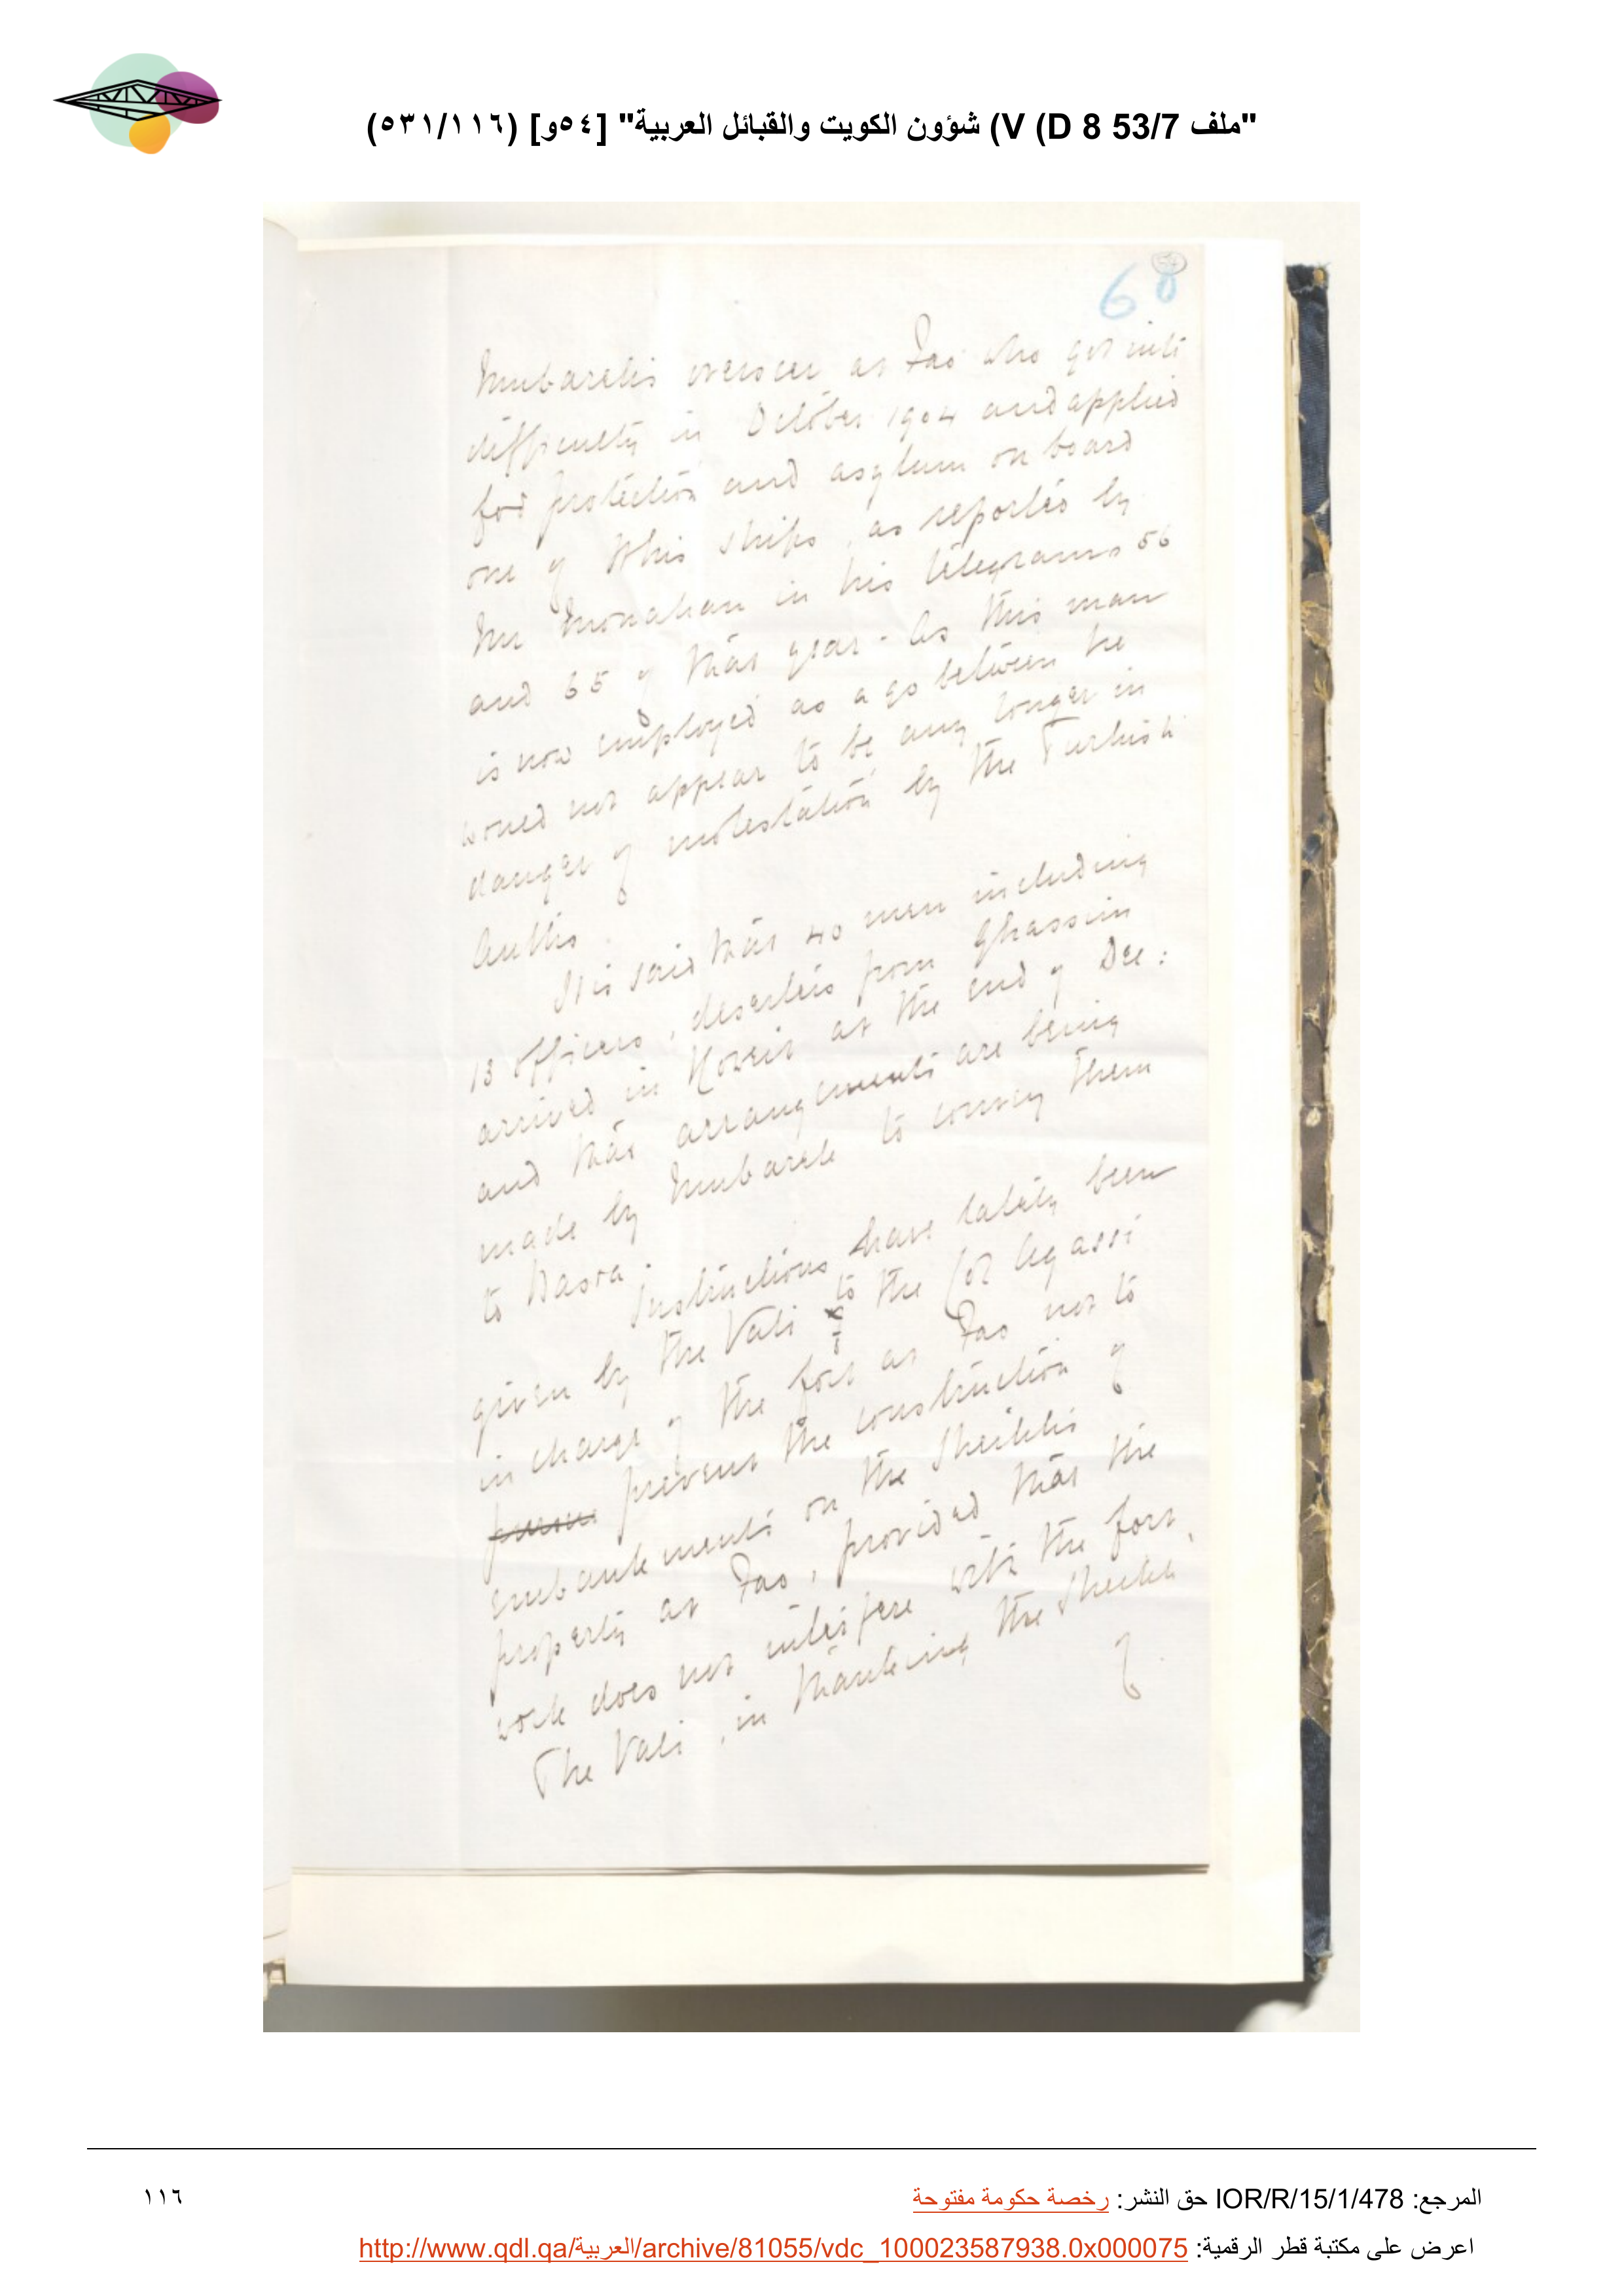 "ملف 53/7 D 8) V) شؤون الكويت والقبائل العربية" [٥٤و] (٥٣١/١١٦)
54
68
Mubarek's overseer at Fao who got into
difficulty in October 1904 and applied
for protection and asylum on board
one of this ships, as reported by
Mr Monahan in his telegrams 56
and 65 of that year. As this man
is now employed as a go between he
would not appear to be any longer in
danger of molestation by the Turkish
Auth's.
It is said that 40 men including
13 officers, deserters from Ghassim
arrived in Koweit at the end of Dec:
and that arrangements are being
made by Mubarek to convey them
to Basra.
Instructions have lately been
given by the Vali to the Col Agassi
in charge of the fort at Fao not to
prevent the construction of
embankments on the Sheikh's
property at Fao, provided that the
work does not interfere with the fort.
The Vali, in thanking the Sheikh
المرجع: IOR/R/15/1/478 حق النشر: رخصة حكومة مفتوحة
١١٦
اعرض على مكتبة قطر الرقمية: http://www.qdl.qa/العربية/archive/81055/vdc_100023587938.0x000075